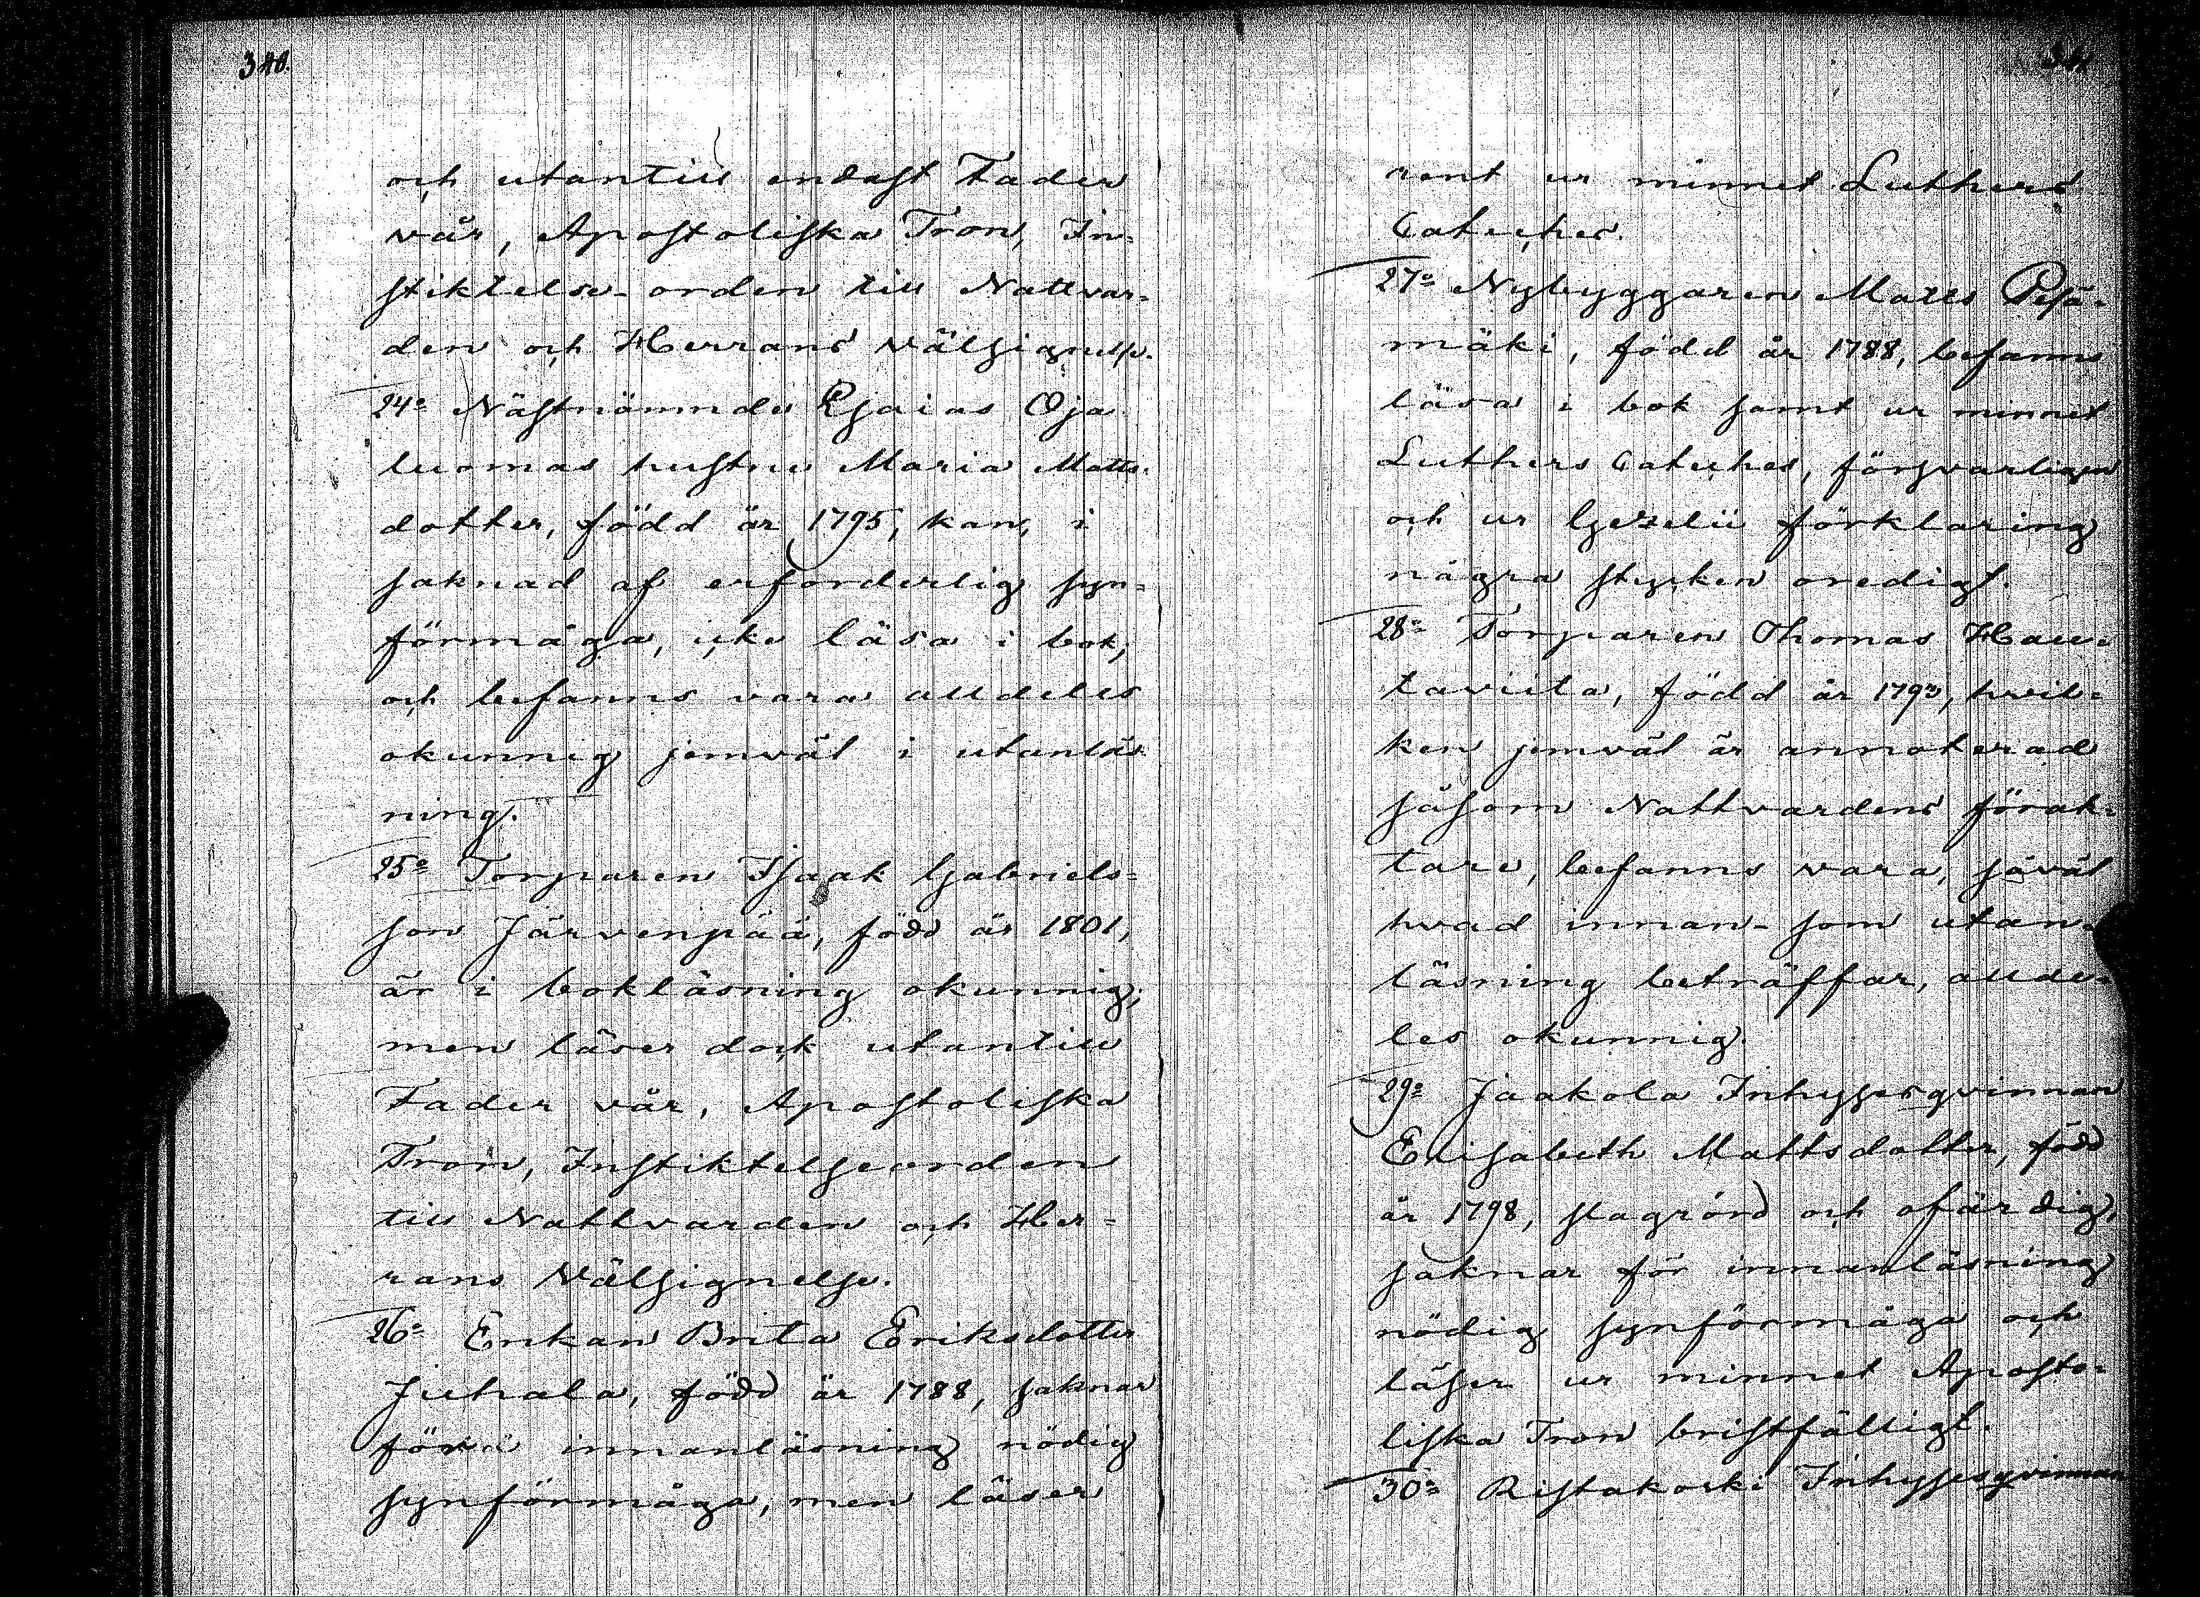 340.
och utantill endast Fader
vår, Apostoliska Tron, In-
stiktelse-orden till Nattvar-
den och Herrans Välsignelse.
24o Nästnämnde Esaias Oja
luomas hustru Maria Matts-
dotter, född år 1795, kan, i
saknad af erforderlig syn-
förmåga, icke läsa i bok,
och befanns vara alldeles
okunnig jemväl i utanläs-
ning.
25o Torparen Isaak Gabriels-
son Järvenpää, född år 1801,
är i bokläsning okunnig;
men läser dock utantill
Fader vår, Apostoliska
Tron, Instiktelseorden
till Nattvarden och Her-
rans Välsignelse.
26o Enkan Brita Eriksdotter
Juhala, född år 1788, saknar
för innanläsning nödig
synförmåga, men läser
rent ur minnet Luthers
Cateches.
27o Nybyggaren Matts Pesä-
mäki, född år 1788, befanns
läsa i bok samt ur minnet
Luthers Cateches, försvarligen
och ur Gezelii förklaring
några stycken oredigt.
28o Torparen Thomas Hau-
taviita, född år 1793, hvil-
ken jemväl är annoterad
såsom Nattvardens förak-
tare, befanns vara, såväl
hvad innan- som utan-
läsning beträffar, allde-
les okunnig.
29o Jaakola Inhysesqvinnan
Elisabeth Mattsdotter, född
år 1798, slagrörd och ofärdig,
saknar för innanläsning
nödig synförmåga och
läser ur minnet Aposto-
liska Tron bristfälligt.
30o Ristakoski Inhysesqvinnan